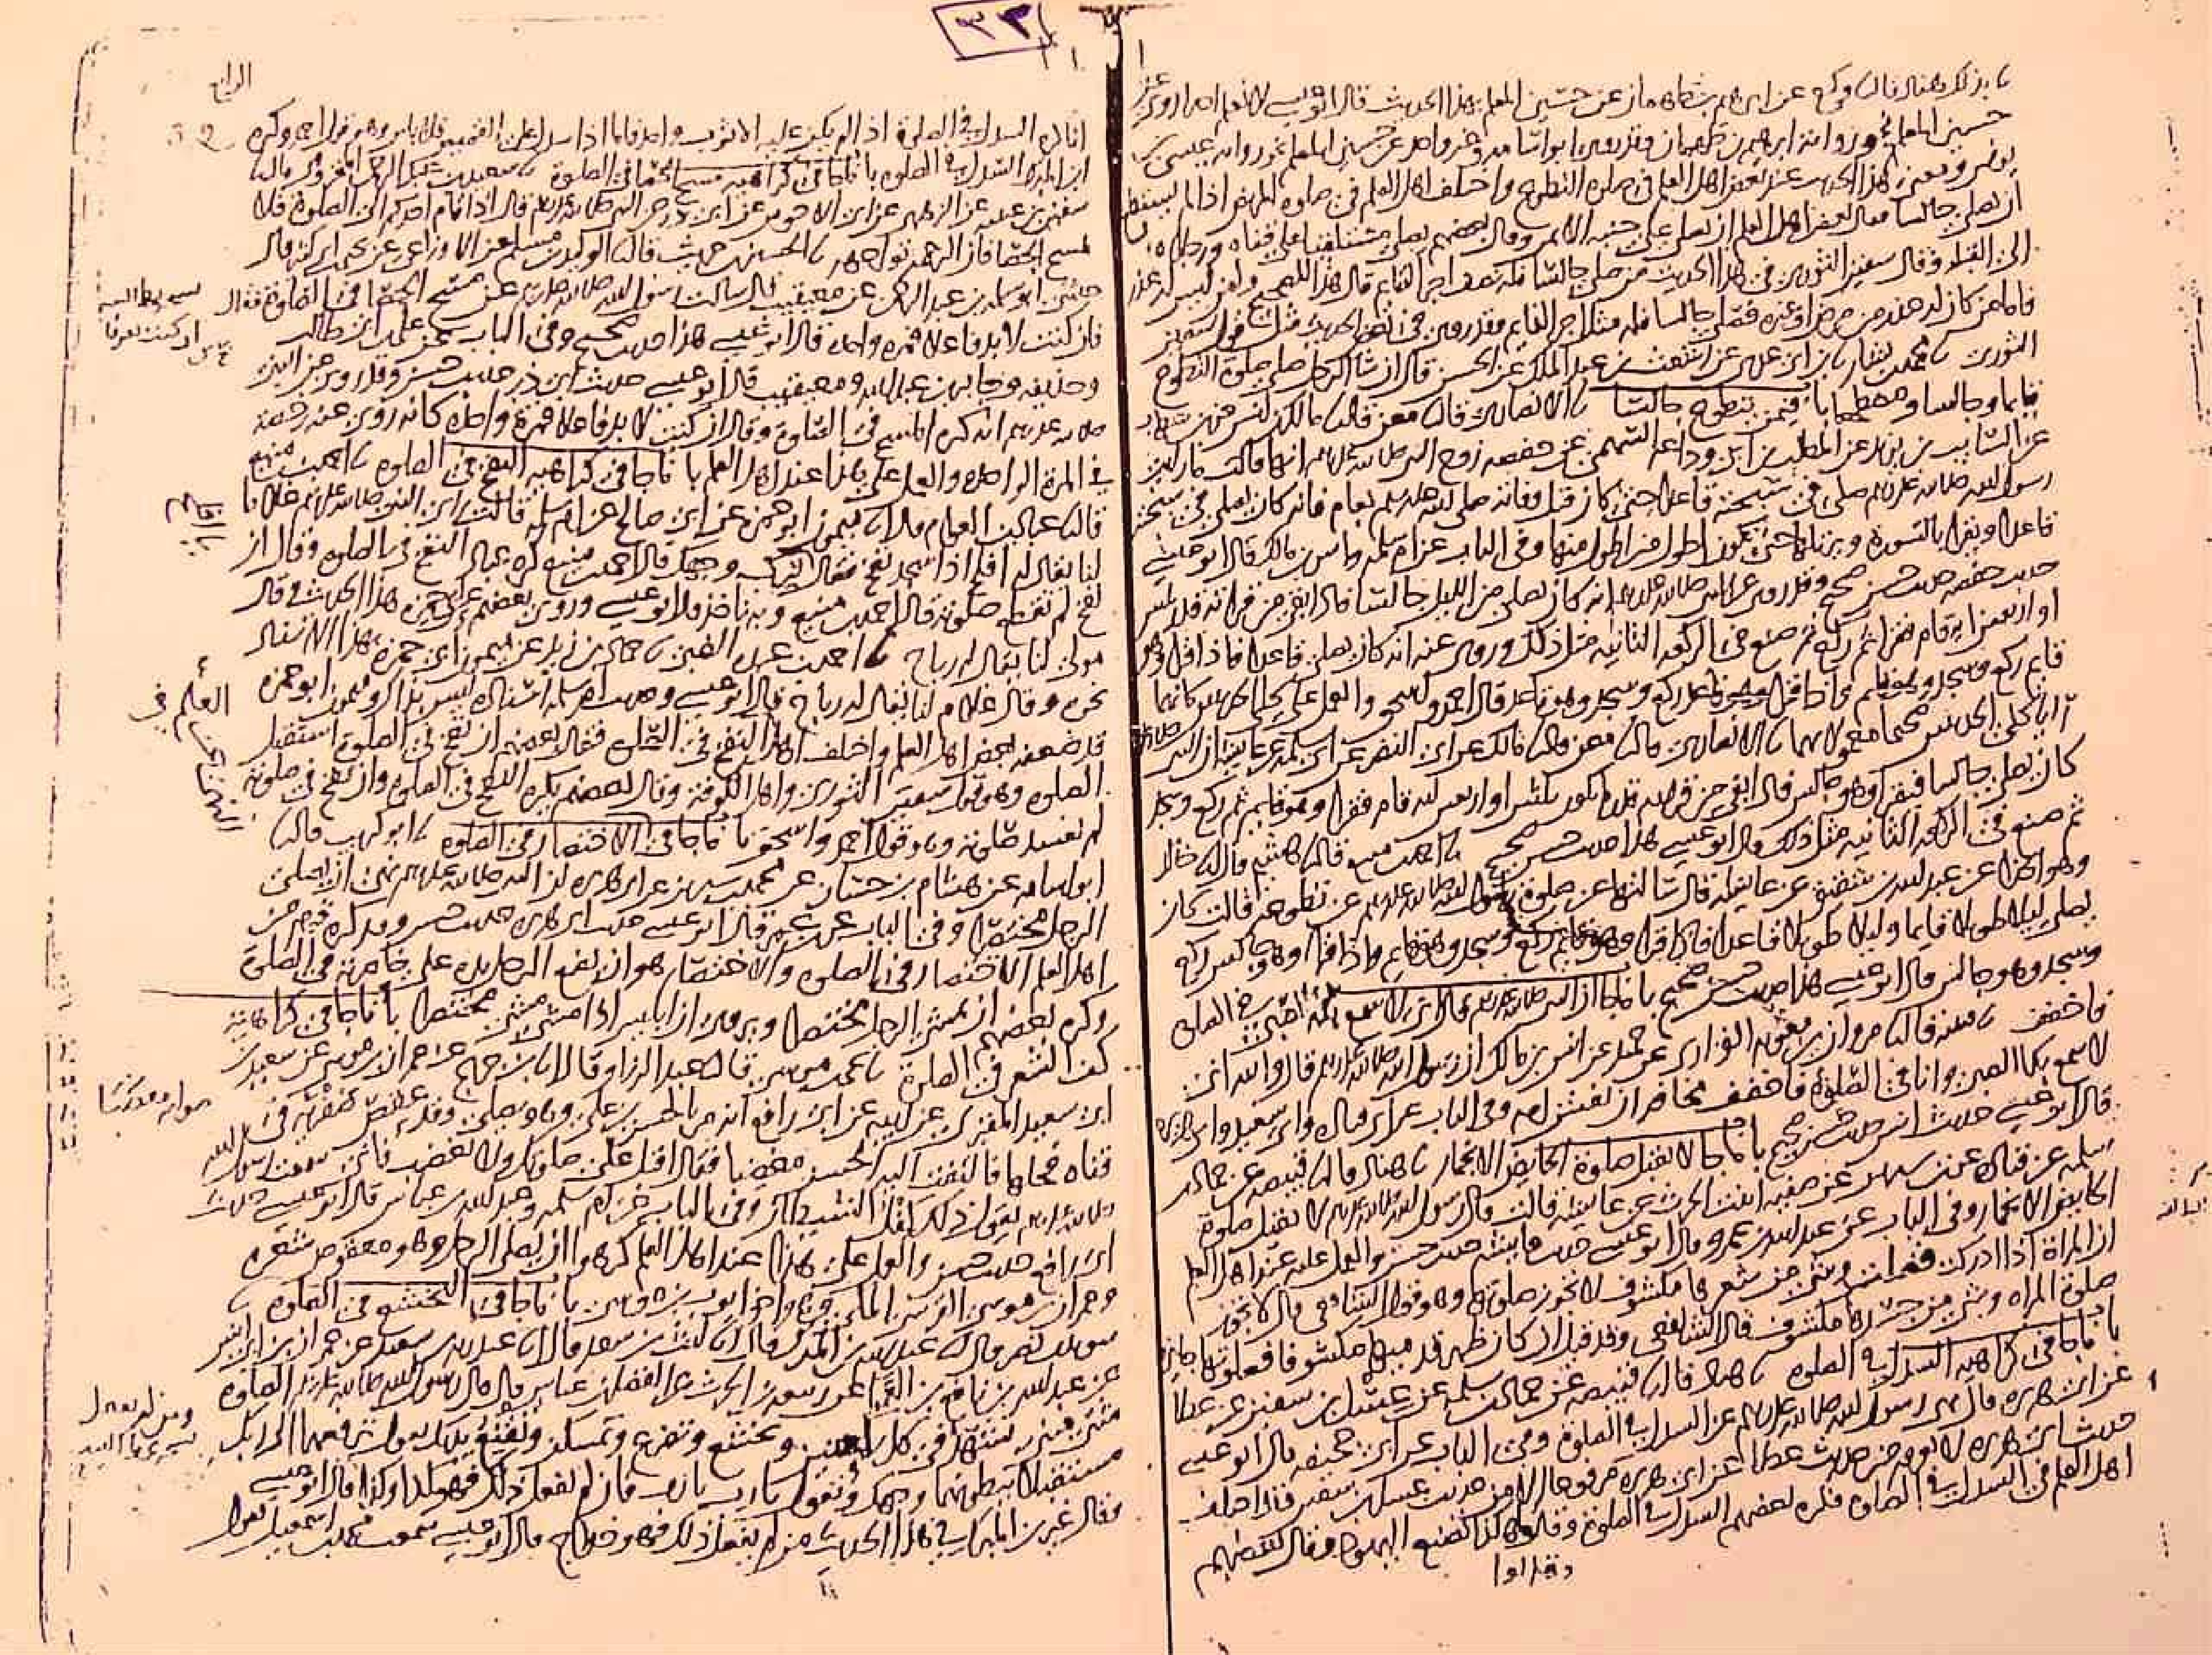 ٣٢
نا بذلك هناد قال نا وكيع عن ابرهيم بن طهمان عن حسين المعلم بهذا الحديث قال ابو عيسى لا نعلم احدا روى عن
حسين المعلم نحو رواية ابرهيم بن طهمان وقد روى ابو اسامة وغير واحد عن حسين المعلم نحو رواية عيسى بن
يونس ومعنى هذا الحديث عند بعض اهل العلم في صلوة التطوع واختلف اهل العلم في صلوة المريض اذا لم يستطع
ان يصلي جالسا فقال بعض اهل العلم ان يصلي على جنبه الايمن وقال بعضهم يصلي مستلقيا على قفاه ورجلاه
الى القبلة وقال سفين الثوري في هذا الحديث من صلى جالسا فله نصف اجر القايم قال هذا للصحيح ولمن ليس له عذر
فاما من كان له عذر من مرض او غيره فصلى جالسا فله مثل اجر القايم وقد روي في بعض الحديث مثل قول سفين
الثوري نا محمد بن بشار نا ابن ابي عدي عن اشعث بن عبد الملك عن الحسن قال ان شا الرجل صلى صلوة التطوع
قايما وجالسا ومضطجعا باب فيمن يتطوع جالسا نا الانصاري قال نا معن قال نا مالك بن انس عن ابن شهاب
عن السايب بن يزيد عن المطلب بن ابي وداعة السهمي عن حفصة زوج النبي صلى الله عليه وسلم انها قالت ما رايت
رسول الله صلى الله عليه وسلم صلى في سبحته قاعدا حتى كان قبل وفاته صلى الله عليه وسلم بعام فانه كان يصلي في سبحته
قاعدا ويقرا بالسورة ويرتلها حتى تكون اطول من اطول منها وفي الباب عن ام سلمة وانس بن مالك قال ابو عيسى
حديث حفصة حديث حسن صحيح وقد روي عن النبي صلى الله عليه وسلم انه كان يصلي من الليل جالسا فاذا بقي من قراته قدر ثلثين
او اربعين اية قام فقرا ثم ركع ثم صنع في الركعة الثانية مثل ذلك وروي عنه انه كان يصلي قاعدا فاذا قرا وهو
قايم ركع وسجد وهو قايم واذا قرا وهو قاعد ركع وسجد وهو قاعد قال احمد واسحق والعمل على كلا الحديثين كانهما
رايا كلا الحديثين صحيحا معمولا بهما نا الانصاري قال نا معن قال نا مالك عن ابي النضر عن ابي سلمة عن عايشة ان النبي صلى الله عليه وسلم
كان يصلي جالسا فيقرا وهو جالس فاذا بقي من قراته قدر ما يكون ثلثين او اربعين اية قام فقرا وهو قايم ثم ركع وسجد
ثم صنع في الركعة الثانية مثل ذلك قال ابو عيسى هذا حديث حسن صحيح نا احمد بن منيع قال نا هشيم قال انا خالد
وهو الحذا عن عبد الله بن شقيق عن عايشة قال سالتها عن صلوة رسول الله صلى الله عليه وسلم عن تطوعه قالت كان
يصلي ليلا طويلا قايما وليلا طويلا قاعدا فاذا قرا وهو قايم ركع وسجد وهو قايم واذا قرا وهو جالس ركع
وسجد وهو جالس قال ابو عيسى هذا حديث حسن صحيح باب ما جا ان النبي صلى الله عليه وسلم قال اني لاسمع بكا الصبي في الصلوة
فاخفف نا قتيبة قال نا مروان بن معوية الفزاري عن حميد عن انس بن مالك ان رسول الله صلى الله عليه وسلم قال والله اني
لاسمع بكا الصبي وانا في الصلوة فاخفف مخافة ان تفتتن امه وفي الباب عن ابي قتادة وابي سعيد وابي هريرة
قال ابو عيسى حديث انس حديث حسن صحيح باب ما جا لا تقبل صلوة الحايض الا بخمار نا هناد قال نا قبيصة عن حماد بن
سلمة عن قتادة عن ابن سيرين عن صفية ابنت الحرث عن عايشة قالت قال رسول الله صلى الله عليه وسلم لا تقبل صلوة
الحايض الا بخمار وفي الباب عن عبد الله بن عمرو قال ابو عيسى حديث عايشة حديث حسن والعمل عليه عند اهل العلم
ان المراة اذا ادركت فصلت وشي من شعرها مكشوف لا تجوز صلوتها وهو قول الشافعي قال لا تجوز
صلوة المراة وشي من جسدها مكشوف قال الشافعي وقد قيل ان كان ظهر قدميها مكشوفا فصلوتها جايزة
باب ما جا في كراهية السدل في الصلوة نا هناد قال نا قبيصة عن حماد بن سلمة عن عسل بن سفين عن عطا
عن ابي هريرة قال نهى رسول الله صلى الله عليه وسلم عن السدل في الصلوة وفي الباب عن ابي جحيفة قال ابو عيسى
حديث ابي هريرة لا نعرفه من حديث عطا عن ابي هريرة مرفوعا الا من حديث عسل بن سفين وقد اختلف
اهل العلم في السدل في الصلوة فكره بعضهم السدل في الصلوة وقالوا هكذا تصنع اليهود وقال بعضهم
الرابع
انما كره السدل في الصلوة اذا لم يكن عليه الا ثوب واحد فاما اذا سدل على القميص فلا باس وهو قول احمد وكره
ابن المبرك السدل في الصلوة باب ما جا في كراهية مسح الحصا في الصلوة نا سعيد بن عبد الرحمن المخزومي قال نا
سفين بن عيينة عن الزهري عن ابي الاحوص عن ابي ذر عن النبي صلى الله عليه وسلم قال اذا قام احدكم الى الصلوة فلا
يمسح الحصا فان الرحمة تواجهه نا الحسين بن حريث قال نا الوليد بن مسلم عن الاوزاعي عن يحيى بن ابي كثير قال
حدثني ابو سلمة بن عبد الرحمن عن معيقيب قال سالت رسول الله صلى الله عليه وسلم عن مسح الحصا في الصلوة فقال
فان كنت لا بد فاعلا فمرة واحدة قال ابو عيسى هذا حديث صحيح وفي الباب عن علي بن ابي طالب
وحذيفة وجابر بن عبد الله ومعيقيب قال ابو عيسى حديث ابي ذر حديث حسن وقد روي عن النبي
صلى الله عليه وسلم انه كره المسح في الصلوة وقال ان كنت لا بد فاعلا فمرة واحدة كانه روي عنه رخصة
في المرة الواحدة والعمل على هذا عند اهل العلم باب ما جا في كراهية النفخ في الصلوة نا احمد بن منيع
قال نا عباد بن العوام قال انا ميمون ابو حمزة عن ابي صالح عن ام سلمة قالت راى النبي صلى الله عليه وسلم غلاما
لنا يقال له افلح اذا سجد نفخ فقال يا افلح ترب وجهك قال احمد بن منيع كره عباد النفخ في الصلوة وقال ان
نفخ لم تقطع صلوته قال احمد بن منيع وبه ناخذ قال ابو عيسى وروى بعضهم عن ابي حمزة هذا الحديث وقال
مولى لنا يقال له رباح نا احمد بن عبدة الضبي نا حماد بن زيد عن ميمون ابي حمزة بهذا الاسناد
نحوه وقال غلام لنا يقال له رباح قال ابو عيسى وحديث ام سلمة اسناده ليس بذاك وميمون ابو حمزة
قد ضعفه بعض اهل العلم واختلف اهل العلم في النفخ في الصلوة فقال بعضهم ان نفخ في الصلوة استقبل
الصلوة وهو قول سفين الثوري واهل الكوفة وقال بعضهم يكره النفخ في الصلوة وان نفخ في صلوته
لم تفسد صلوته وهو قول احمد واسحق باب ما جا في الاختصار في الصلوة نا ابو كريب قال نا
ابو اسامة عن هشام بن حسان عن محمد بن سيرين عن ابي هريرة ان النبي صلى الله عليه وسلم نهى ان يصلي
الرجل مختصرا وفي الباب عن ابن عمر قال ابو عيسى حديث ابي هريرة حديث حسن وقد كره قوم من
اهل العلم الاختصار في الصلوة والاختصار هو ان يضع الرجل يده على خاصرته في الصلوة
وكره بعضهم ان يمشي الرجل مختصرا ويروى ان ابليس اذا مشى مشى مختصرا باب ما جا في كراهية
كف الشعر في الصلوة نا يحيى بن موسى قال نا عبد الرزاق قال انا ابن جريج عن عمران بن موسى عن سعيد بن
ابي سعيد المقبري عن ابيه عن ابي رافع انه مر بالحسن بن علي وهو يصلي وقد عقص ضفرته في
قفاه فحلها فالتفت اليه الحسن مغضبا فقال اقبل على صلوتك ولا تغضب فاني سمعت رسول الله
صلى الله عليه وسلم يقول ذلك كفل الشيطان وفي الباب عن ام سلمة وعبد الله بن عباس قال ابو عيسى حديث
ابي رافع حديث حسن والعمل على هذا عند اهل العلم كرهوا ان يصلي الرجل وهو معقوص شعره
وعمران بن موسى القرشي المكي هو اخو ايوب بن موسى باب ما جا في التخشع في الصلوة نا
سويد بن نصر قال نا عبد الله بن المبرك قال انا ليث بن سعد قال انا عبد ربه بن سعيد عن عمران بن ابي انس
عن عبد الله بن نافع بن العميا عن ربيعة بن الحرث عن الفضل بن عباس قال قال رسول الله صلى الله عليه وسلم الصلوة
مثنى مثنى تشهد في كل ركعتين وتخشع وتضرع وتمسكن وتقنع يديك يقول ترفعهما الى ربك
مستقبلا ببطونهما وجهك وتقول يا رب يا رب فان لم تفعل ذلك فهو كذا وكذا قال ابو عيسى
وقال غير ابن المبرك في هذا الحديث من لم يفعل ذلك فهو خداج قال ابو عيسى سمعت محمد بن اسمعيل يقول